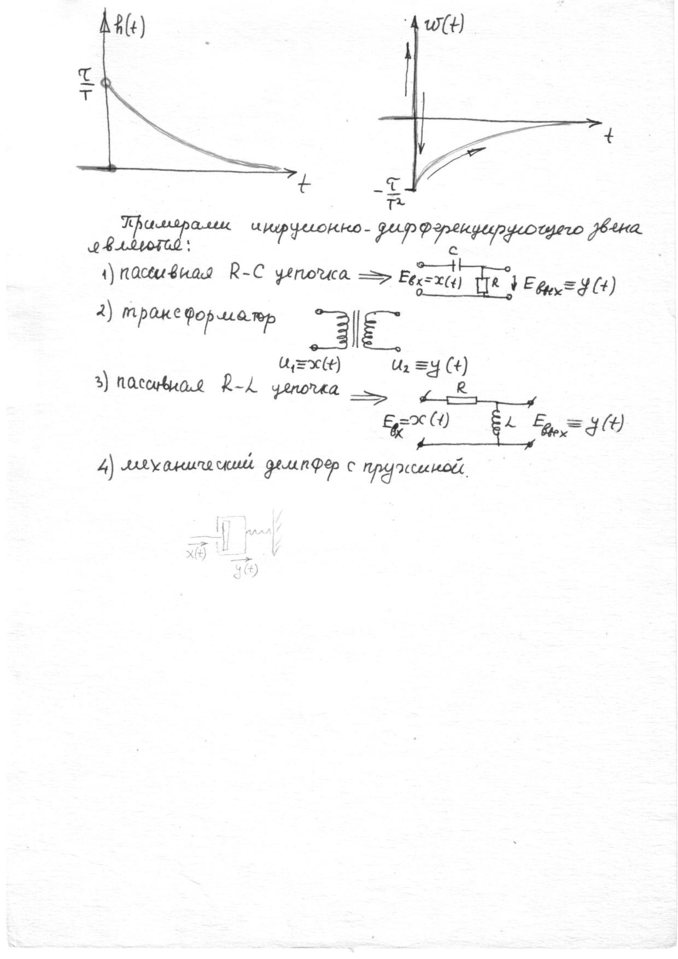 h(t)
τ/T
t
w(t)
t
-τ/T²
Примерами инерционно-дифференцирующего звена
являются:
1) пассивная R-C цепочка ⇒ Eвх=x(t) C R Eвых≡y(t)
2) трансформатор
U₁≡x(t) U₂≡y(t)
3) пассивная R-L цепочка ⇒
R
Eвх=x(t) L Eвых≡y(t)
4) механический демпфер с пружиной.
x(t)
y(t)